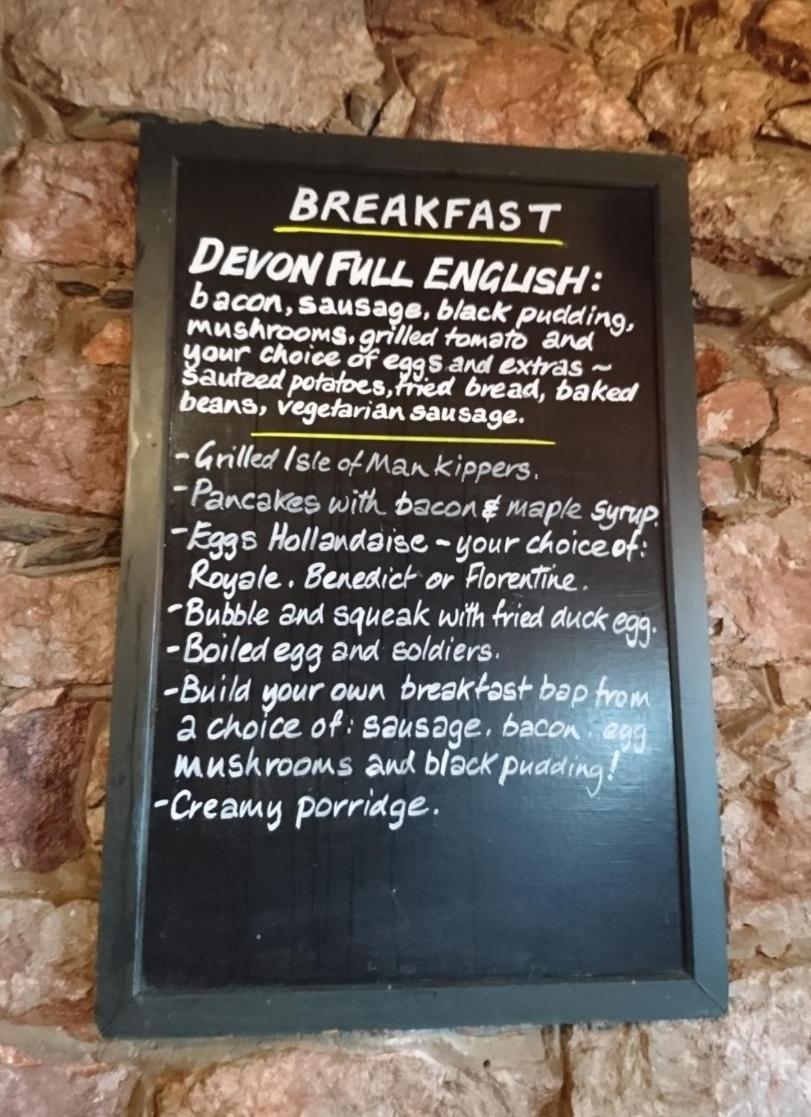 BREAKFAST
DEVON FULL ENGLISH:
bacon, sausage, black pudding,
mushrooms, grilled tomato and
your choice of eggs and extras ~
sauteed potatoes, fried bread, baked
beans, vegetarian sausage.
- Grilled Isle of Man kippers.
- Pancakes with bacon & maple syrup.
- Eggs Hollandaise - your choice of:
Royale. Benedict or Florentine.
- Bubble and squeak with fried duck egg.
- Boiled egg and soldiers.
- Build your own breakfast bap from
a choice of: sausage. bacon. egg
mushrooms and black pudding!
- Creamy porridge.